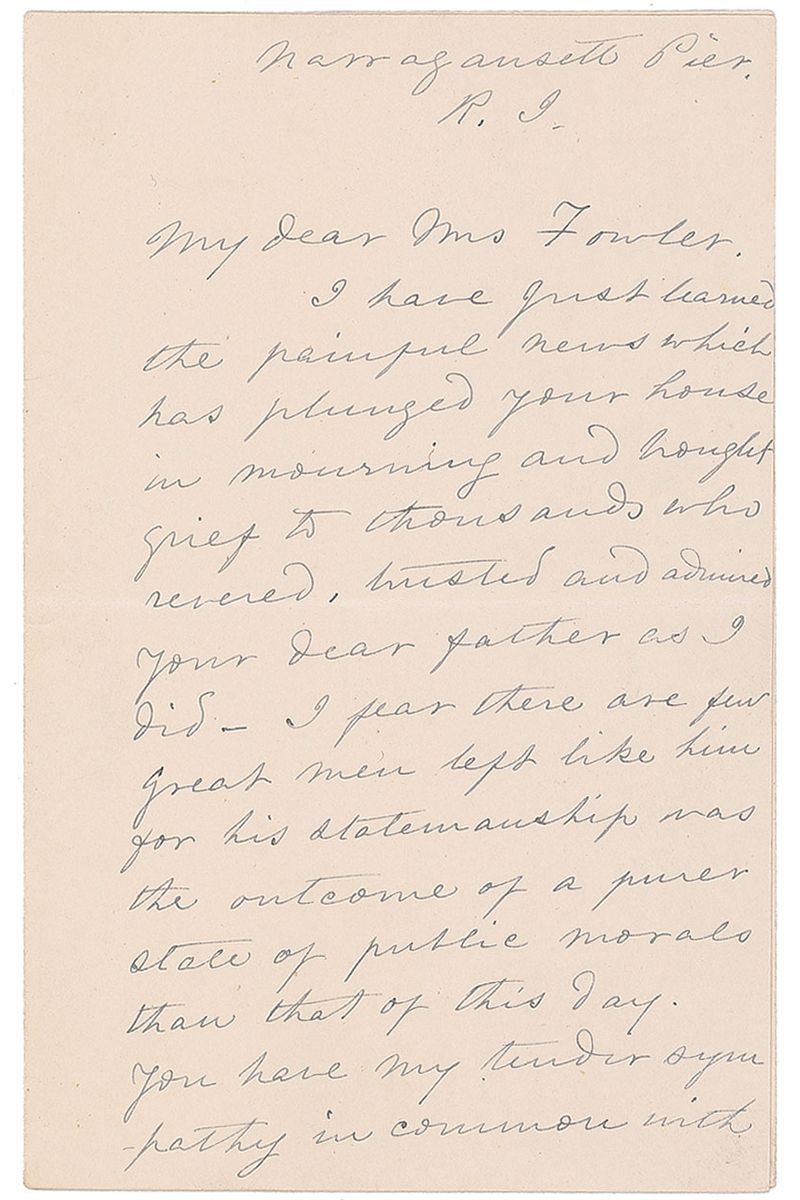 Narragansett Pier.
R. I.
My dear Mrs Fowler.
I have just learned
the painful news which
has plunged your house
in mourning and brought
grief to thousands who
revered, trusted and admired
your dear father as I
did – I fear there are few
great men left like him
for his statemanship was
the outcome of a purer
state of public morals
than that of this day.
You have my tender sym
-pathy in common with